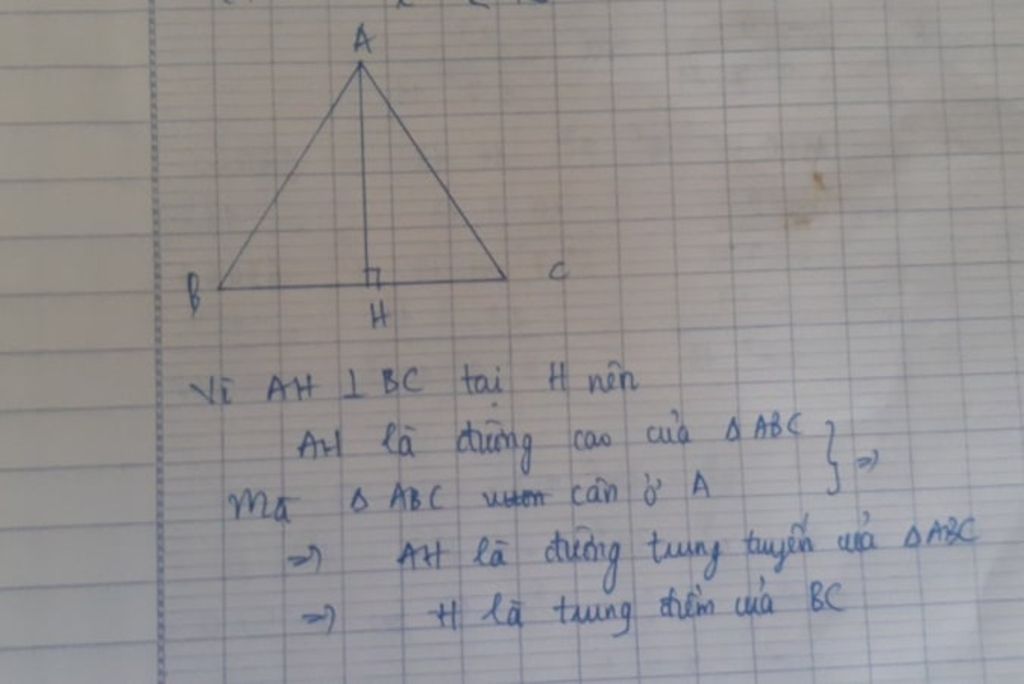 A
B
C
H
Vì AH ⊥ BC tại H nên
AH là đường cao của Δ ABC } =>
Mà Δ ABC cân ở A
=> AH là đường trung tuyến của Δ ABC
=> H là trung điểm của BC